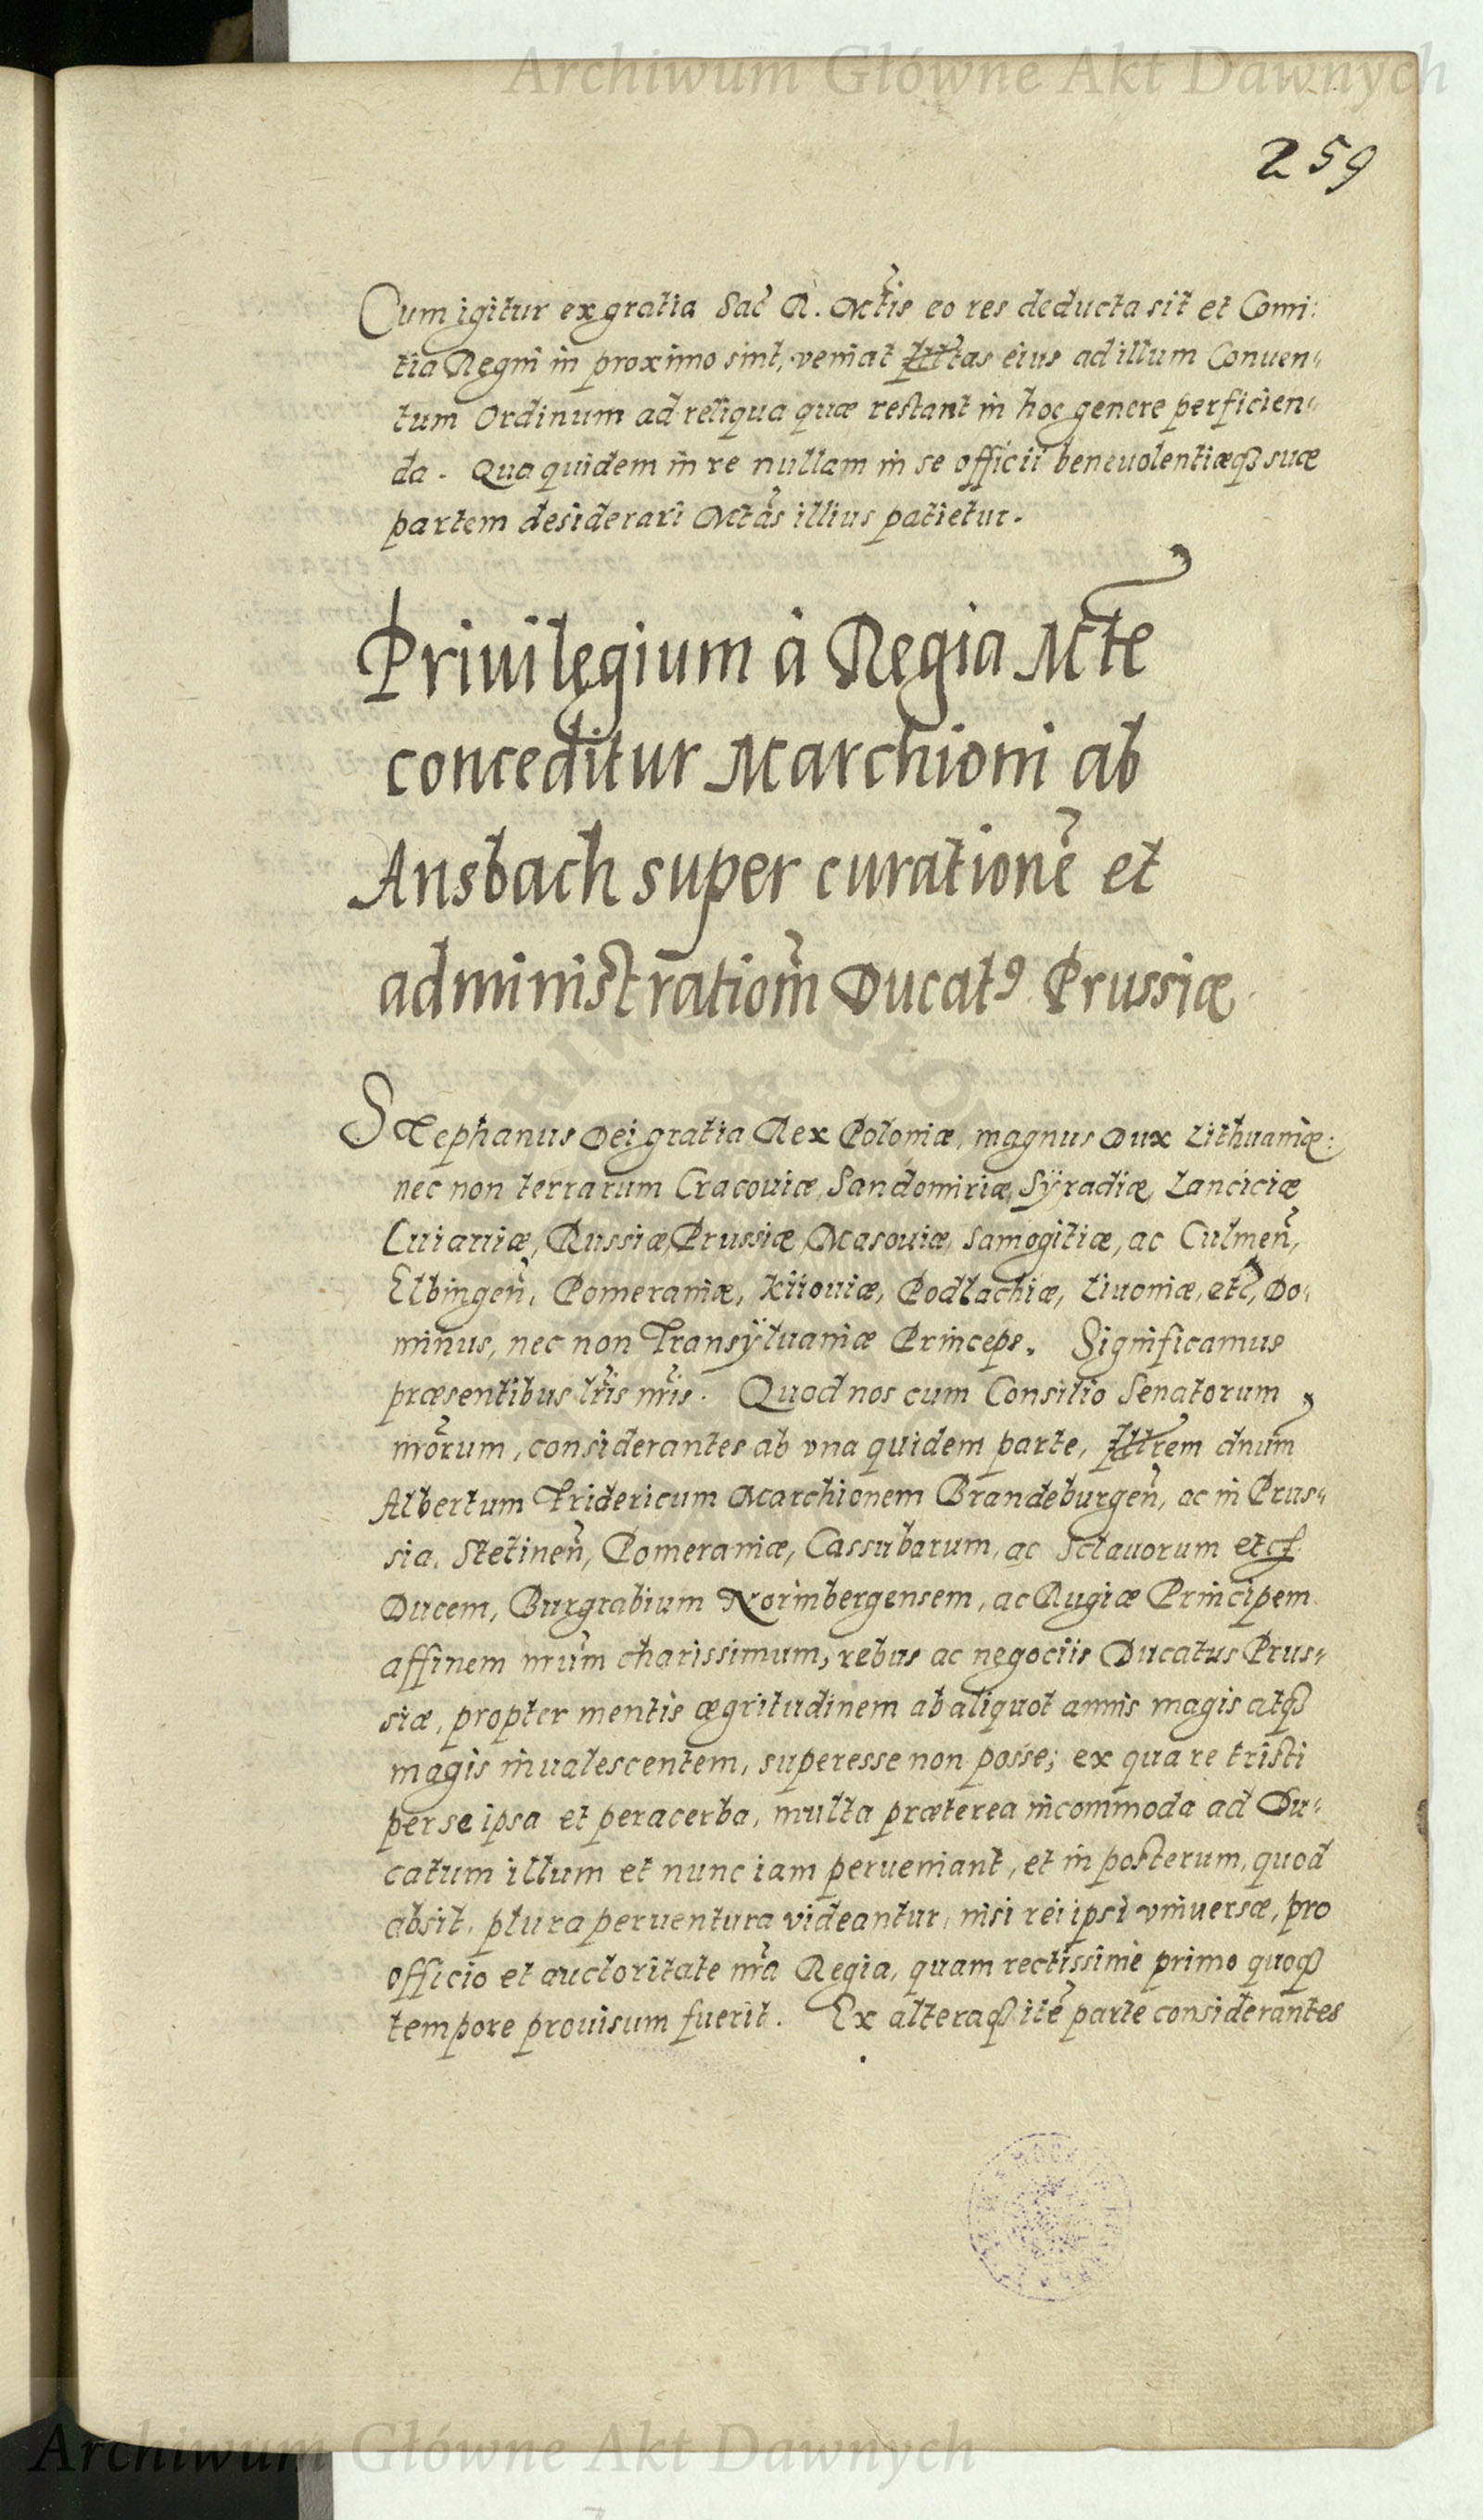 Archiwum Główne Akt Dawnych
259
Cum igitur ex gratia Sac̃ R. Mt̃is eo res deducta sit et Comi:
tia Regni in proximo sint, veniat Illt̃as eius ad illum Conuen„
tum Ordinum ad reliqua quæ restant in hoc genere perficien„
da. Qua quidem in re nullam in se officii beneuolentiæqꝫ suæ
partem desiderari Mt̃as illius patietur.
Priuilęgium à Regia Mt̃e
conceditur Marchioni ab
Ansbach super curationẽ et
administratiom̃ Ducatꝰ Prussiæ
Stephanus Dei gratia Rex Poloniæ, magnus Dux Lithuaniæ:
nec non terrarum Cracouiæ, Sandomiriæ, Sÿradiæ, Lanciciæ
Cuiauiæ, Russiæ, Prussiæ, Masouiæ, Samogitiæ, ac Culmeñ,
Elbingeñ, Pomeraniæ, Kiiouiæ, Podlachiæ, Liuoniæ, etc̃, Do„
minus, nec non Transÿluaniæ Princeps. Significamus
præsentibus lr̃is nr̃is. Quod nos cum Consilio Senatorum
nr̃orum, considerantes ab vna quidem parte, Illt̃rem dnum̃
Albertum Fridericum Marchionem Brandeburgeñ, ac in Prus„
sia, Stetineñ, Pomeraniæ, Cassubarum, ac Sclauorum etc.
Ducem, Burgrabium Norimbergensem, ac Rugiæ Principem
affinem nr̃um charissimum, rebus ac negociis Ducatus Prus„
siæ, propter mentis ægritudinem ab aliquot annis magis atqꝫ
magis inualescentem, superesse non posse; ex qua re tristi
per se ipsa et peracerba, multa præterea incommoda ad Du„
catum illum et nunc iam perueniant, et in posterum, quod
absit, plura peruentura videantur, nisi rei ipsi vniuersæ, pro
officio et auctoritate nr̃a Regia, quam rectissimè primo quoqꝫ
tempore prouisum fuerit. Ex alteraqꝫ itẽ parte considerantes
Archiwum Główne Akt Dawnych